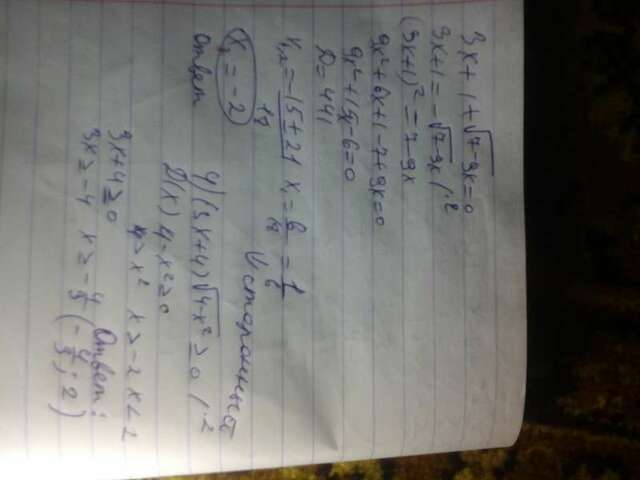 3x+1+√7-9x=0
3x+1=-√7-9x /·2
(3x+1)²=7-9x
9x²+6x+1-7+9x=0
9x²+15x-6=0
D=441
x₁,₂=-15±21/18 x₁=6/18=1/6 сторонний
x₁=-2
Ответ
4) (3x+4)√4-x²≥0 /·2
D(x) 4-x²≥0
4≥x² x≥-2 x≤2
3x+4≥0
3x≥-4 x≥-4/3
Ответ:
(-4/3; 2)